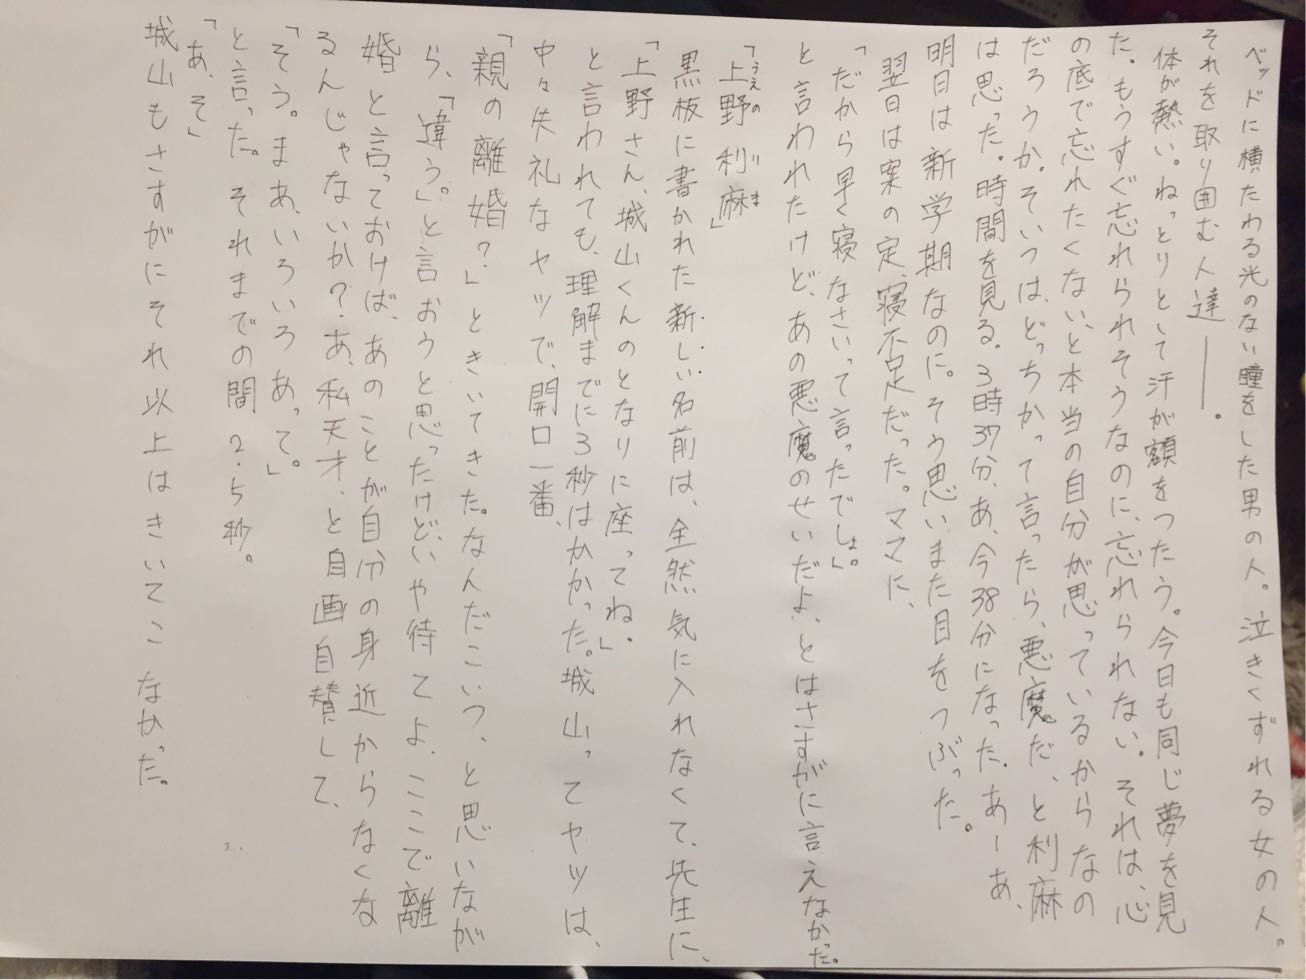 ベッドに横たわる光のない瞳をした男の人。泣きくずれる女の人。
それを取り囲む人達――。
体が熱い。ねっとりとして汗が額をつたう。今日も同じ夢を見
た。もうすぐ忘れられそうなのに、忘れられない。それは、心
の底で忘れたくない、と本当の自分が思っているからなの
だろうか。そいつは、どっちかって言ったら、悪魔だ、と利麻
は思った。時間を見る。3時37分、あ、今38分になった。あーあ、
明日は新学期なのに。そう思いまた目をつぶった。
翌日は案の定、寝不足だった。ママに、
「だから早く寝なさいって言ったでしょ。」
と言われたけど、あの悪魔のせいだよ、とはさすがに言えなかった。
「上野利麻」
うえの りま
黒板に書かれた新しい名前は、全然気に入れなくて、先生に、
「上野さん、城山くんのとなりに座ってね。」
と言われても、理解までに3秒はかかった。城山ってヤツは、
中々失礼なヤツで、開口一番、
「親の離婚?」ときいてきた。なんだこいつ、と思いなが
ら、「違う。」と言おうと思ったけど、いや待てよ、ここで離
婚と言っておけば、あのことが自分の身近からなくな
るんじゃないか?あ、私天才、と自画自賛して、
「そう。まあ、いろいろあって。」
と言った。それまでの間2.5秒。
「あ、そ」
城山もさすがにそれ以上はきいてこなかった。